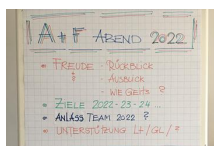 A + F ABEND 2022
• FREUDE - RÜCKBLICK
? - AUSBLICK
- WIE GEHTS ?
• ZIELE 2022 - 23 - 24 ...
• ANLÄSS TEAM 2022 ?
• UNTERSTÜTZUNG LT/GL/?